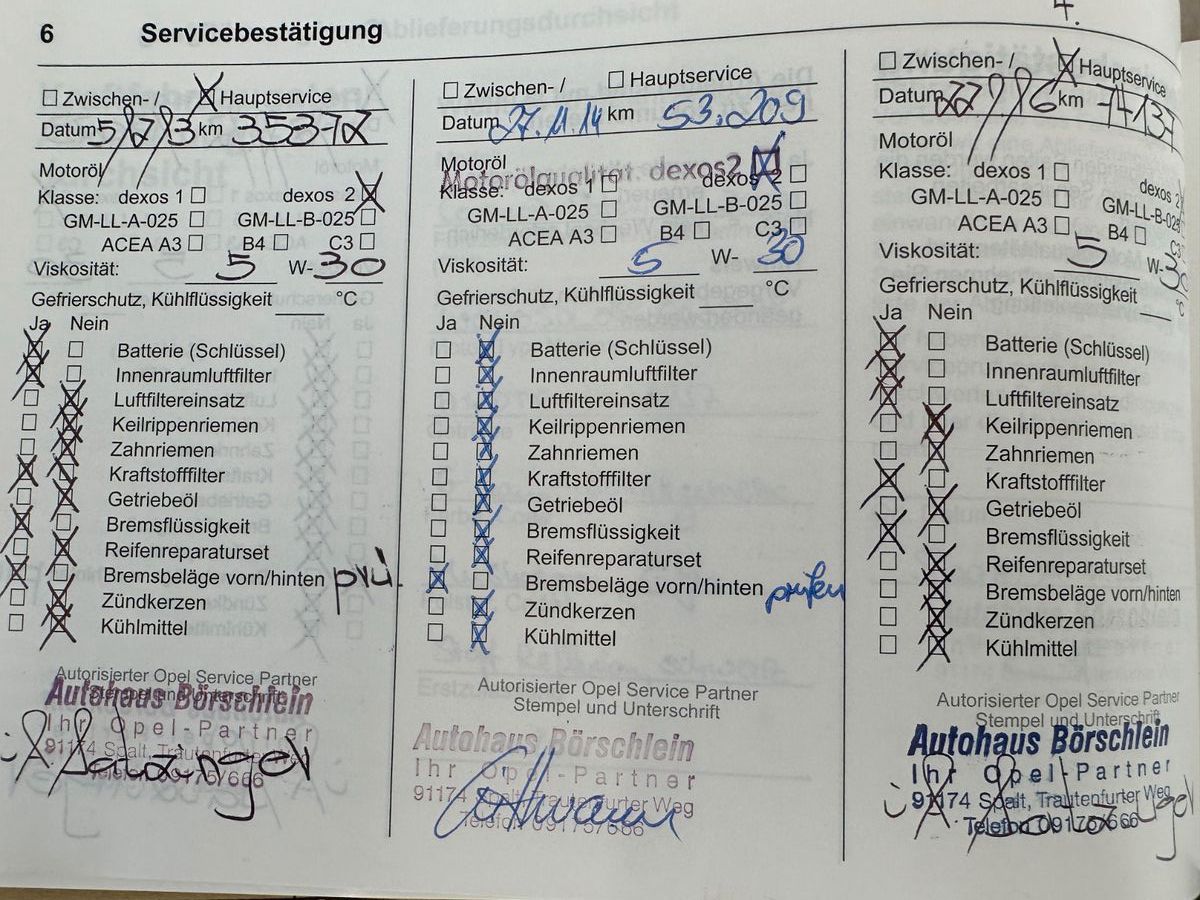 6 Servicebestätigung
4.
Zwischen- / Hauptservice
Datum 5/7/3 km 35372
Motoröl
Klasse: dexos 1 dexos 2
GM-LL-A-025 GM-LL-B-025
ACEA A3 B4 C3
Viskosität: 5 W-30
Gefrierschutz, Kühlflüssigkeit °C
Ja Nein
Batterie (Schlüssel)
Innenraumluftfilter
Luftfiltereinsatz
Keilrippenriemen
Zahnriemen
Kraftstofffilter
Getriebeöl
Bremsflüssigkeit
Reifenreparaturset
Bremsbeläge vorn/hinten prü.
Zündkerzen
Kühlmittel
Autorisierter Opel Service Partner
Stempel und Unterschrift
Autohaus Börschlein
Ihr Opel-Partner
91174 Spalt, Trautenfurter Weg
Telefon 09175/666
Zwischen- / Hauptservice
Datum 27.11.14 km 53.209
Motoröl
Motorölqualität dexos2
Klasse: dexos 1 dexos 2
GM-LL-A-025 GM-LL-B-025
ACEA A3 B4 C3
Viskosität: 5 W-30
Gefrierschutz, Kühlflüssigkeit °C
Ja Nein
Batterie (Schlüssel)
Innenraumluftfilter
Luftfiltereinsatz
Keilrippenriemen
Zahnriemen
Kraftstofffilter
Getriebeöl
Bremsflüssigkeit
Reifenreparaturset
Bremsbeläge vorn/hinten prüfen
Zündkerzen
Kühlmittel
Autorisierter Opel Service Partner
Stempel und Unterschrift
Autohaus Börschlein
Ihr Opel-Partner
91174 Spalt, Trautenfurter Weg
Telefon 09175/666
Zwischen- / Hauptservice
Datum 22/ /6 km 74137
Motoröl
Klasse: dexos 1 dexos 2
GM-LL-A-025 GM-LL-B-025
ACEA A3 B4 C3
Viskosität: 5 W-30
Gefrierschutz, Kühlflüssigkeit °C
Ja Nein
Batterie (Schlüssel)
Innenraumluftfilter
Luftfiltereinsatz
Keilrippenriemen
Zahnriemen
Kraftstofffilter
Getriebeöl
Bremsflüssigkeit
Reifenreparaturset
Bremsbeläge vorn/hinten
Zündkerzen
Kühlmittel
Autorisierter Opel Service Partner
Stempel und Unterschrift
Autohaus Börschlein
Ihr Opel-Partner
91174 Spalt, Trautenfurter Weg
Telefon 09175/666